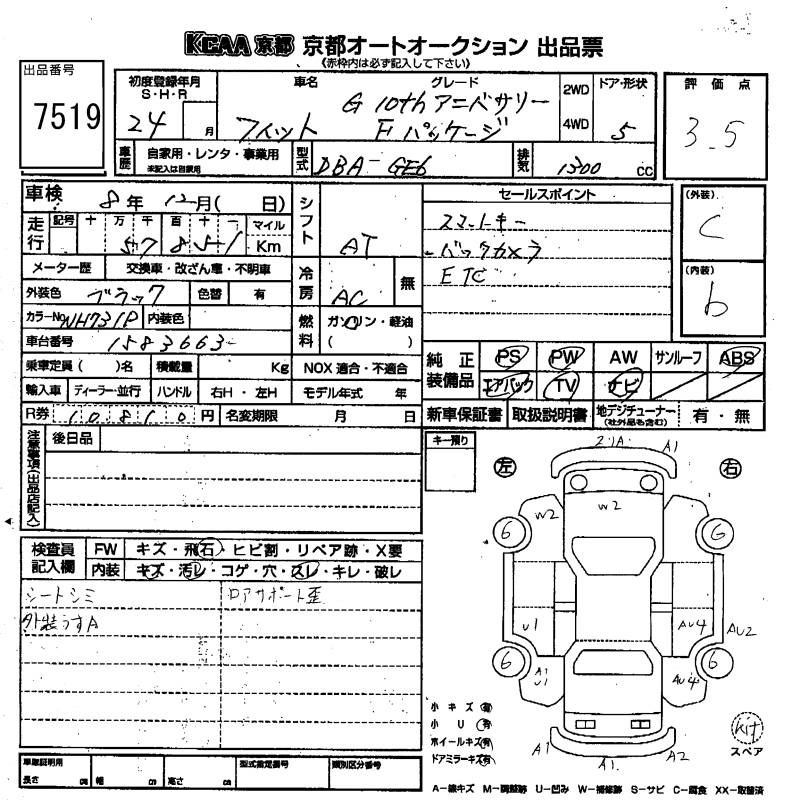 KCAA 京都 京都オートオークション 出品票
(赤枠内は必ず記入して下さい)
出品番号
7519
初度登録年月
S・H・R
24 月
車名
フィット
グレード
G 10th アニバサリー
Fパッケージ
2WD
4WD
ドア・形状
5
評価点
3.5
車歴
自家用・レンタ・事業用
未記入は自家用
型式
DBA-GE6
排気
1300 CC
車検 8年 12月( 日)
走行
記号 十 万 千 百 十 一 マイル
57851 Km
シフト
AT
セールスポイント
スマートキー
バックカメラ
ETC
(外装)
C
(内装)
b
メーター歴 交換車・改ざん車・不明車
冷房
AC
無
外装色 ブラック 色替 有
カラーNo NH731P 内装色
燃料
ガソリン・軽油
( )
車台番号 1583663
乗車定員( )名 積載量 Kg NOX 適合・不適合
輸入車 ディーラー・並行 ハンドル 右H・左H モデル年式 年
R券 10810 円 名変期限 月 日
純正装備品
PS PW AW サンルーフ ABS
エアバック TV ナビ
新車保証書 取扱説明書 地デジチューナー(社外品も含む) 有・無
注意事項(出品店記入)
後日品
キー預り
左
右
検査員記入欄
FW キズ・飛石・ヒビ割・リペア跡・X要
内装 キズ・汚レ・コゲ・穴・スレ・キレ・破レ
シートシミ
外装うすA
コアサポート歪
A1
W2
W2
6
G
U1
AU4
AU2
6
6
A1
U1
AU4
A1
A1
A2
小キズ(有)
小U(有)
ホイールキズ(有)
ドアミラーキズ(有)
Kit
スペア
車庫証明用
長さ cm 幅 cm 高さ cm
型式指定番号
類別区分番号
A-線キズ M-調整跡 U-凹み W-補修跡 S-サビ C-腐食 XX-取替済